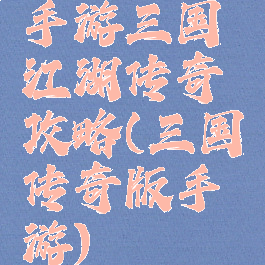 手游三国
江湖传奇
攻略(三国
传奇版手
游)